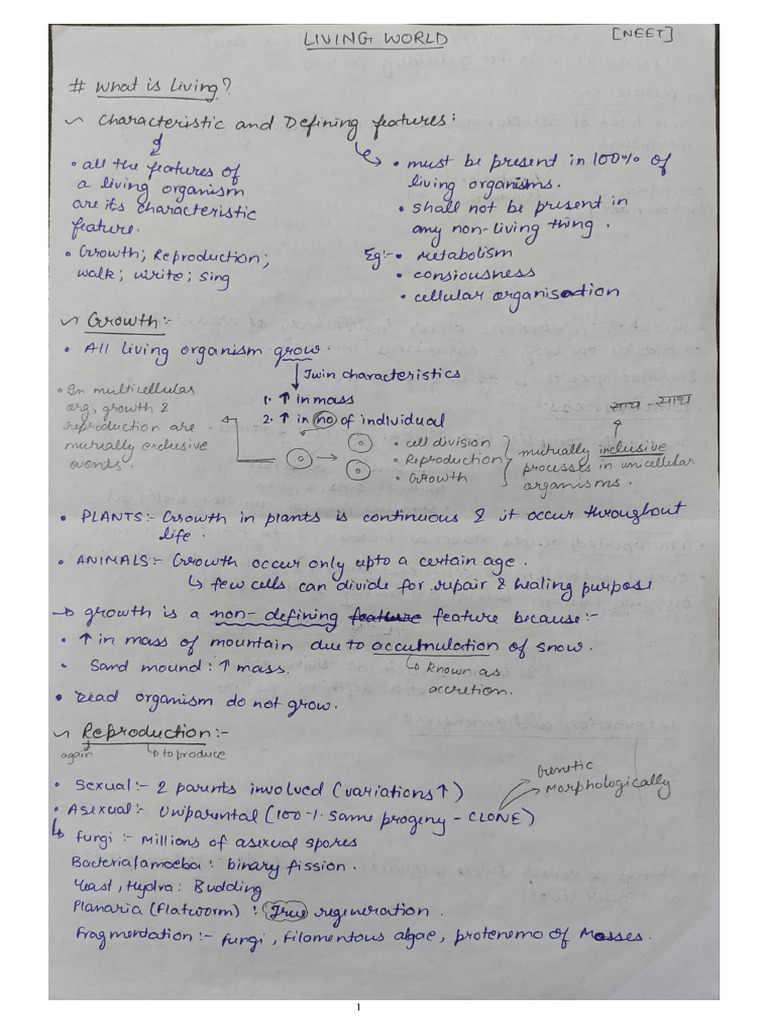 LIVING WORLD [NEET]
# What is Living?
Characteristic and Defining features:
• all the features of
a living organism
are its characteristic
feature.
• Growth; Reproduction;
walk; write; sing
• must be present in 100% of
living organisms.
• shall not be present in
any non-living thing.
Eg:- • Metabolism
• consiousness
• cellular organisation
Growth:-
• All living organism grow.
↓ Twin characteristics
1. ↑ in mass
2. ↑ in no of individual
• In multicellular
org, growth &
reproduction are
mutually exclusive
events.
• cell division
• Reproduction
• Growth
साथ - साथ
mutually inclusive
processes in unicellular
organisms.
• PLANTS:- Growth in plants is continuous & it occur throughout
life.
• ANIMALS:- Growth occur only upto a certain age.
↳ few cells can divide for repair & healing purpose
→ growth is a non-defining feature feature because:-
• ↑ in mass of mountain due to accumulation of snow.
• Sand mound: ↑ mass.
↳ Known as
accretion.
• Dead organism do not grow.
Reproduction:-
again
↳ to produce
• Sexual:- 2 parents involved (variations ↑)
Genetic
Morphologically
• Asexual:- Uniparental (100% same progeny - CLONE)
↳ fungi:- Millions of asexual spores
Bacteria/amoeba: binary fission.
Yeast, Hydra: Budding
Planaria (flatworm): True regeneration.
Fragmentation:- fungi, filamentous algae, protenemo of Mosses.
1